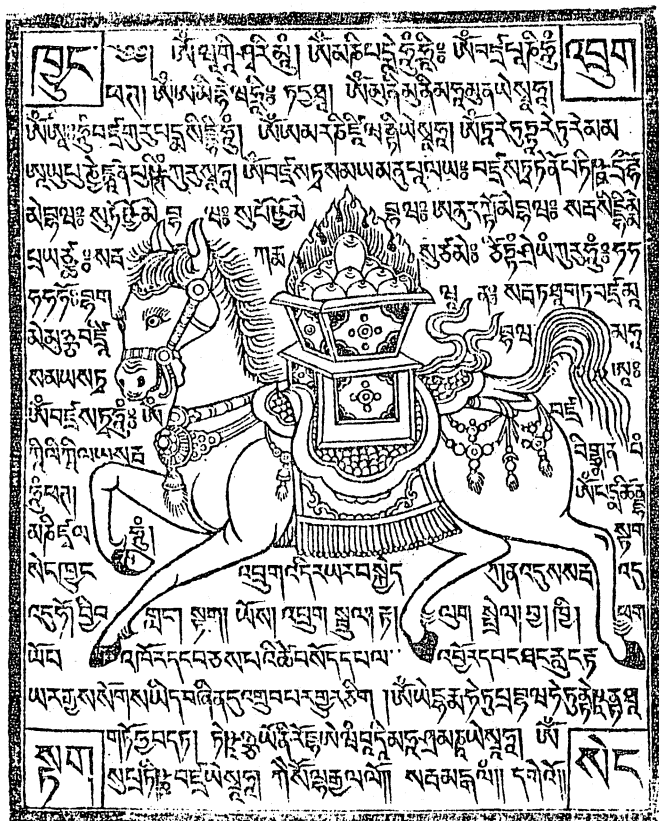 ཁྱུང་ ༄༅། །ཨོཾ་ཝཱ་གི་ཤྭ་རི་མུཾ། ཨོཾ་མ་ཎི་པདྨེ་ཧཱུྃ་ཧྲཱིཿ ཨོཾ་བཛྲ་པཱ་ཎི་ཧཱུྃ་ འབྲུག
ཕཊ། ཏདྱ་ཐཱ། ཨོཾ་མུ་ནི་མུ་ནི་མ་ཧཱ་མུ་ན་ཡེ་སྭཱ་ཧཱ།
ཨོཾ་ཨཱཿཧཱུྃ་བཛྲ་གུ་རུ་པདྨ་སིདྡྷི་ཧཱུྃ། ཨོཾ་ཨ་མ་ར་ཎི་ཛཱི་ཝནྟི་ཡེ་སྭཱ་ཧཱ། ཨོཾ་ཏཱ་རེ་ཏུཏྟཱ་རེ་ཏུ་རེ་མ་མ་
ཨཱ་ཡུ་པུཎྱེ་ཛྙཱ་ན་པུཥྚིཾ་ཀུ་རུ་སྭཱ་ཧཱ། ཨོཾ་བཛྲ་སཏྭ་ས་མ་ཡ་མ་ནུ་པཱ་ལ་ཡཿ བཛྲ་སཏྭ་ཏེ་ནོ་པ་ཏིཥྛ་དྲྀ་ཌྷོ་
མེ་བྷ་ཝཿ སུ་ཏོ་ཥྱོ་མེ་བྷ་ཝཿ སུ་པོ་ཥྱོ་མེ་བྷ་ཝཿ ཨ་ནུ་རཀྟོ་མེ་བྷ་ཝཿ སརྦ་སིདྡྷི་མྨེ་
པྲ་ཡ་ཙྪཿ སརྦ་ཀརྨ་སུ་ཙ་མེཿ ཙིཏྟཾ་ཤྲེ་ཡཾ་ཀུ་རུ་ཧཱུྃཿ ཧ་ཧ་
ཧ་ཧ་ཧོཿ བྷ་ག་ཝཱ་ནཿ སརྦ་ཏ་ཐཱ་ག་ཏ་བཛྲ་མཱ་
མེ་མུཉྩ་བཛྲཱི་བྷ་ཝ་མ་ཧཱ་
ས་མ་ཡ་སཏྭ་ཨཱཿ
ཨོཾ་བཛྲ་སཏྭ་ཧཱུྃཿ ཨོཾ་བཛྲ་
ཀཱི་ལི་ཀཱི་ལ་ཡ་སརྦ་བིགྷྣཱན་བཾ་
ཧཱུྃ་ཕཊ།
ཧཱུྃ། སྟག་
སེང་ཁྱུང་འབྲུག་འདིར་ཡར་བསྐྱེད་ཀུན་འདུས་སརྦ་འདུ་
འདུ་ཧོ་བྱི་བ་གླང་། སྟག། ཡོས། འབྲུག་སྦྲུལ། རྟ། ལུག་སྤྲེལ། བྱ། ཁྱི། ཕག་
འཁོར་དང་བཅས་པའི་ཚེ་བསོད་དཔལ་འབྱོར་དབང་ཐང་རླུང་རྟ་
ཡར་རྒྱས་སོགས་ཡིད་བཞིན་དུ་འགྲུབ་པར་གྱུར་ཅིག །ཨོཾ་ཡེ་དྷརྨཱ་ཧེ་ཏུ་པྲ་བྷ་ཝ་ཧེ་ཏུནྟེ་ཥཱནྟ་ཐཱ་
སྟག གཏོ་ཧྱ་ཝ་དཏ། ཏེ་ཥཱཉྩ་ཡོ་ནི་རོ་དྷ་ཨེ་ཝཾ་བཱ་དཱི་མ་ཧཱ་ཤྲ་མ་ཎཱ་ཡ་སྭཱ་ཧཱ། ཨོཾ་ སེང་
སུ་པྲ་ཏིཥྛ་བཛྲ་ཡེ་སྭཱ་ཧཱ། ཀི་སོ་ལྷ་རྒྱལ་ལོ།། སརྦ་མངྒ་ལཾ།། དགེའོ།།